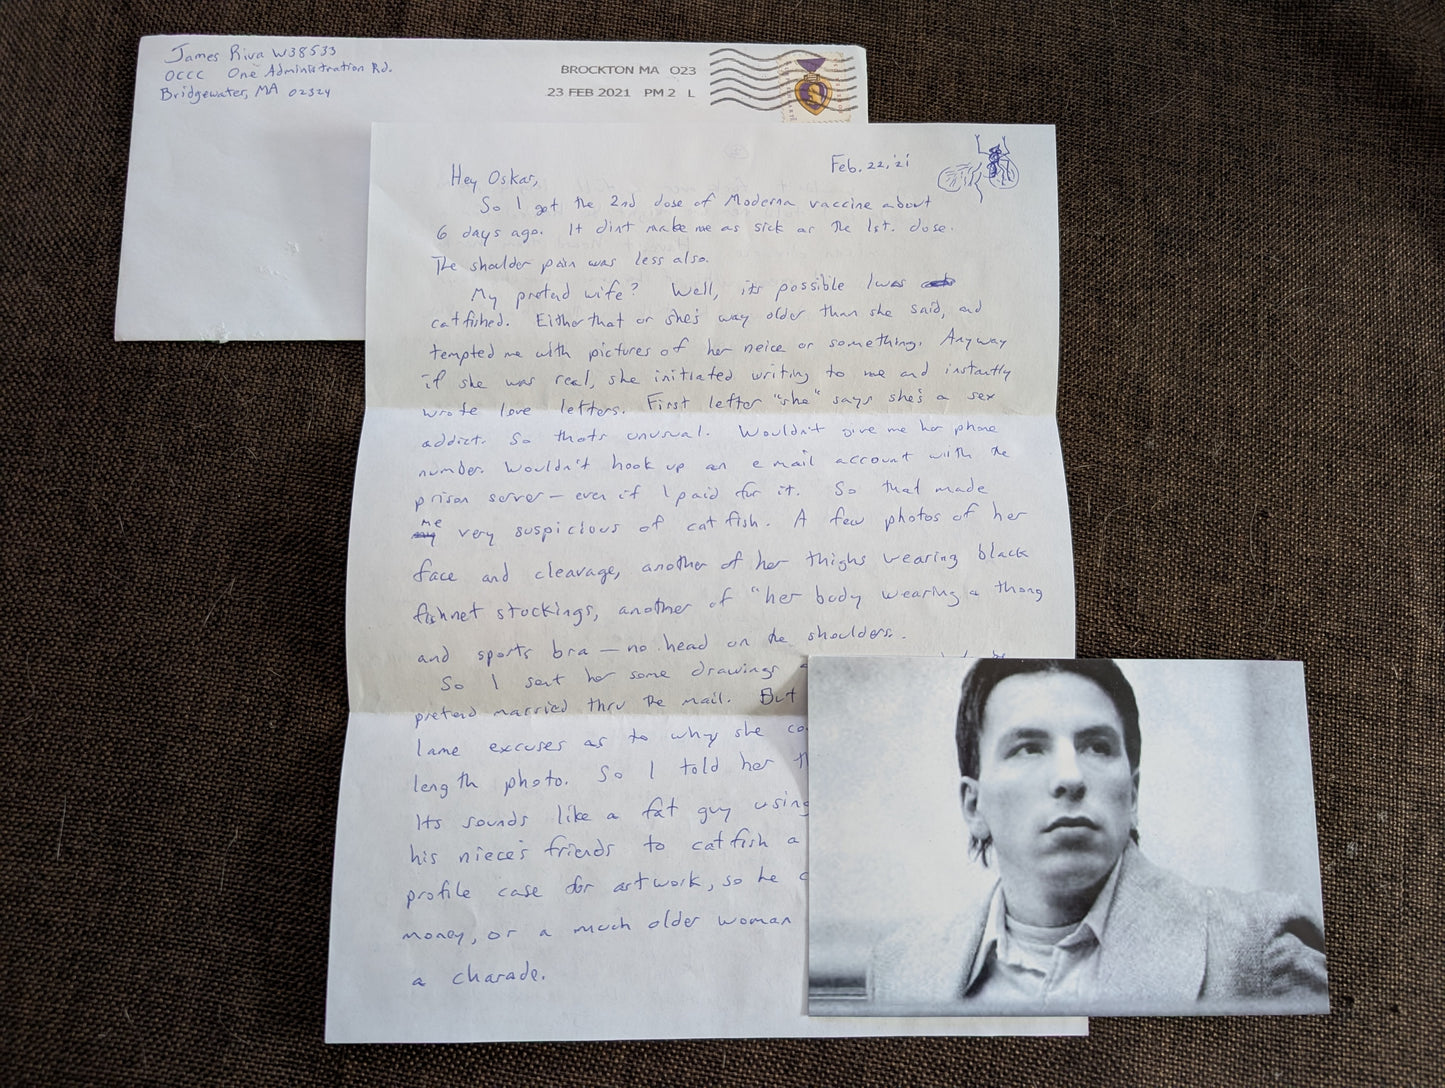 James Riva W38533
OCCC One Administration Rd.
Bridgewater, MA 02324
BROCKTON MA 023
23 FEB 2021 PM 2 L
Feb. 22, '21
Hey Oskar,
So I got the 2nd dose of Moderna vaccine about
6 days ago. It dint make me as sick as the 1st. dose.
The shoulder pain was less also.
My pretend wife? Well, its possible I was
catfished. Either that or she's way older than she said, and
tempted me with pictures of her neice or something. Anyway
if she was real, she initiated writing to me and instantly
wrote love letters. First letter "she" says she's a sex
addict. So thats unusual. Wouldn't give me her phone
number. Wouldn't hook up an email account with the
prison server — even if I paid for it. So that made
me very suspicious of cat fish. A few photos of her
face and cleavage, another of her thighs wearing black
fishnet stockings, another of "her body wearing a thong
and sports bra — no head on the shoulders.
So I sent her some drawings
pretend married thru the mail. But
lame excuses as to why she co
length photo. So I told her
Its sounds like a fat guy using
his niece's friends to catfish a
profile case for artwork, so he
money, or a much older woman
a charade.